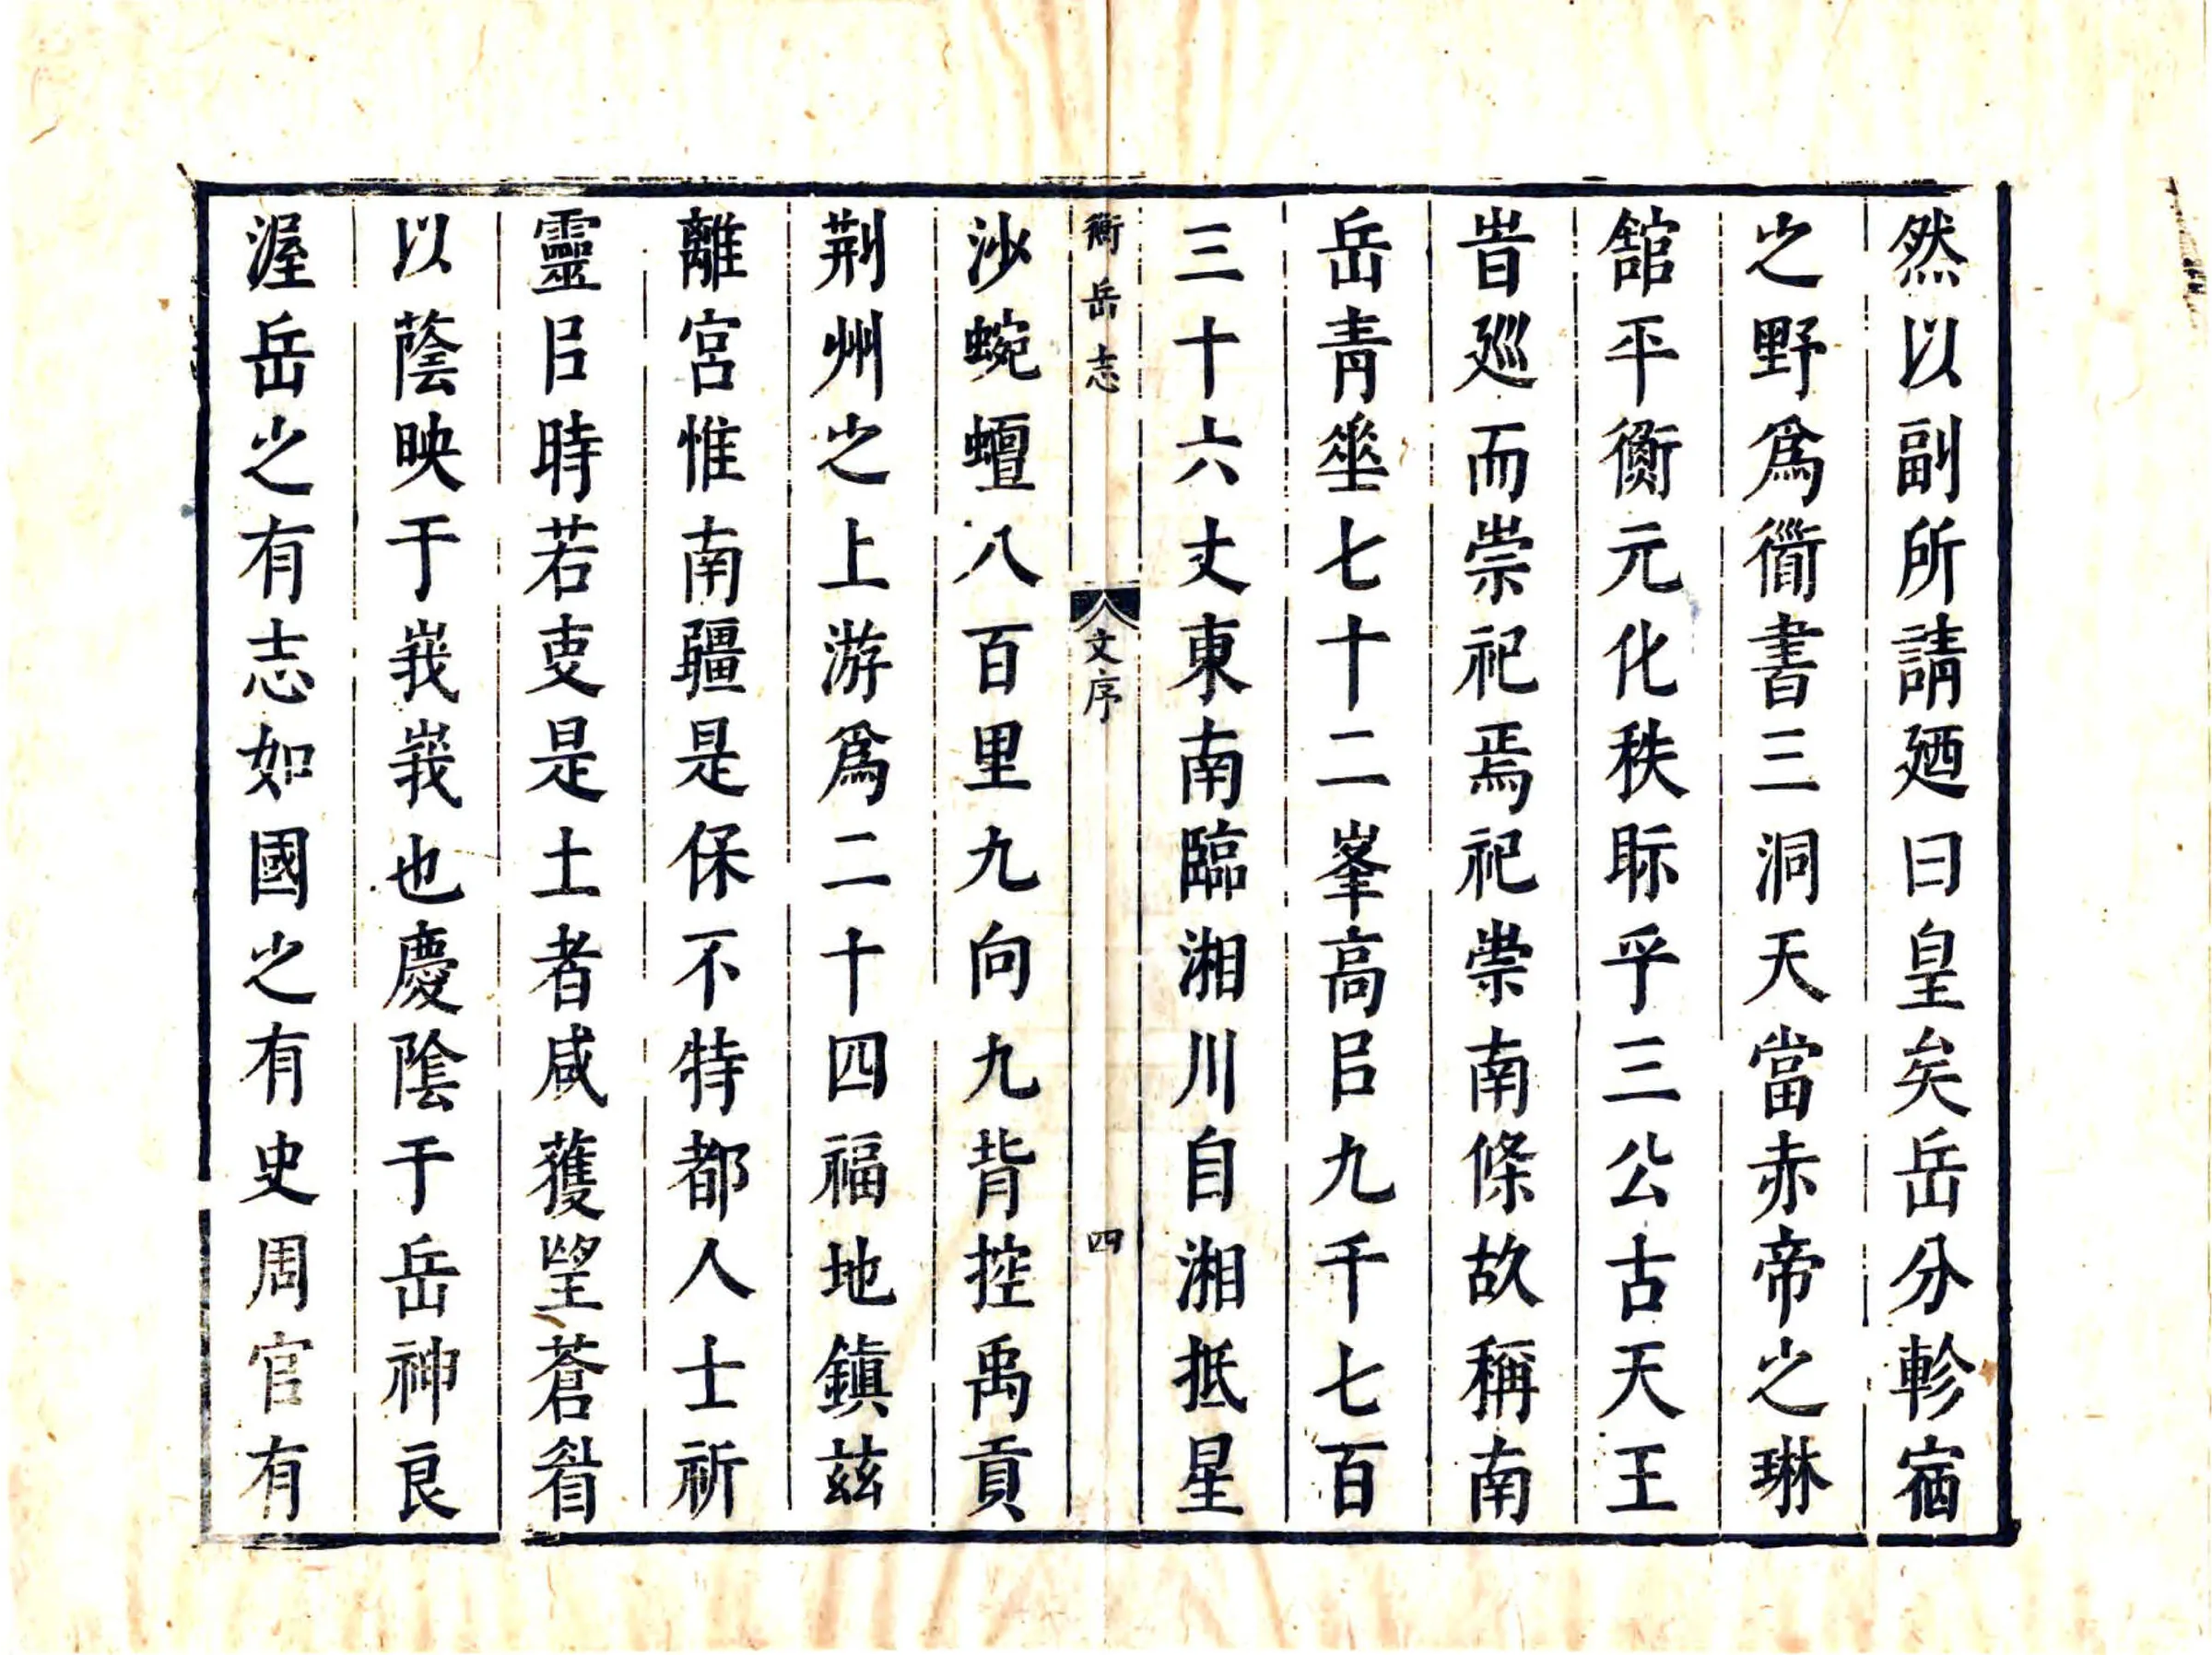 然以副所請廼曰皇矣岳分軫宿
之野爲衟書三洞天當赤帝之琳
舘平衡元化秩眎乎三公古天王
旹廵而崇祀焉祀崇南條故稱南
岳靑垒七十二峯高㠯九千七百
三十六丈東南臨湘川自湘抵星
衡岳志 文序 四
沙蜿蟺八百里九向九背控禹貢
荆州之上游爲二十四福地鎭茲
離宮惟南疆是保不特都人士祈
靈㠯時若叓是土者咸獲朢蒼睂
以蔭映于峩峩也慶隂于岳神良
渥岳之有志如國之有史周官有